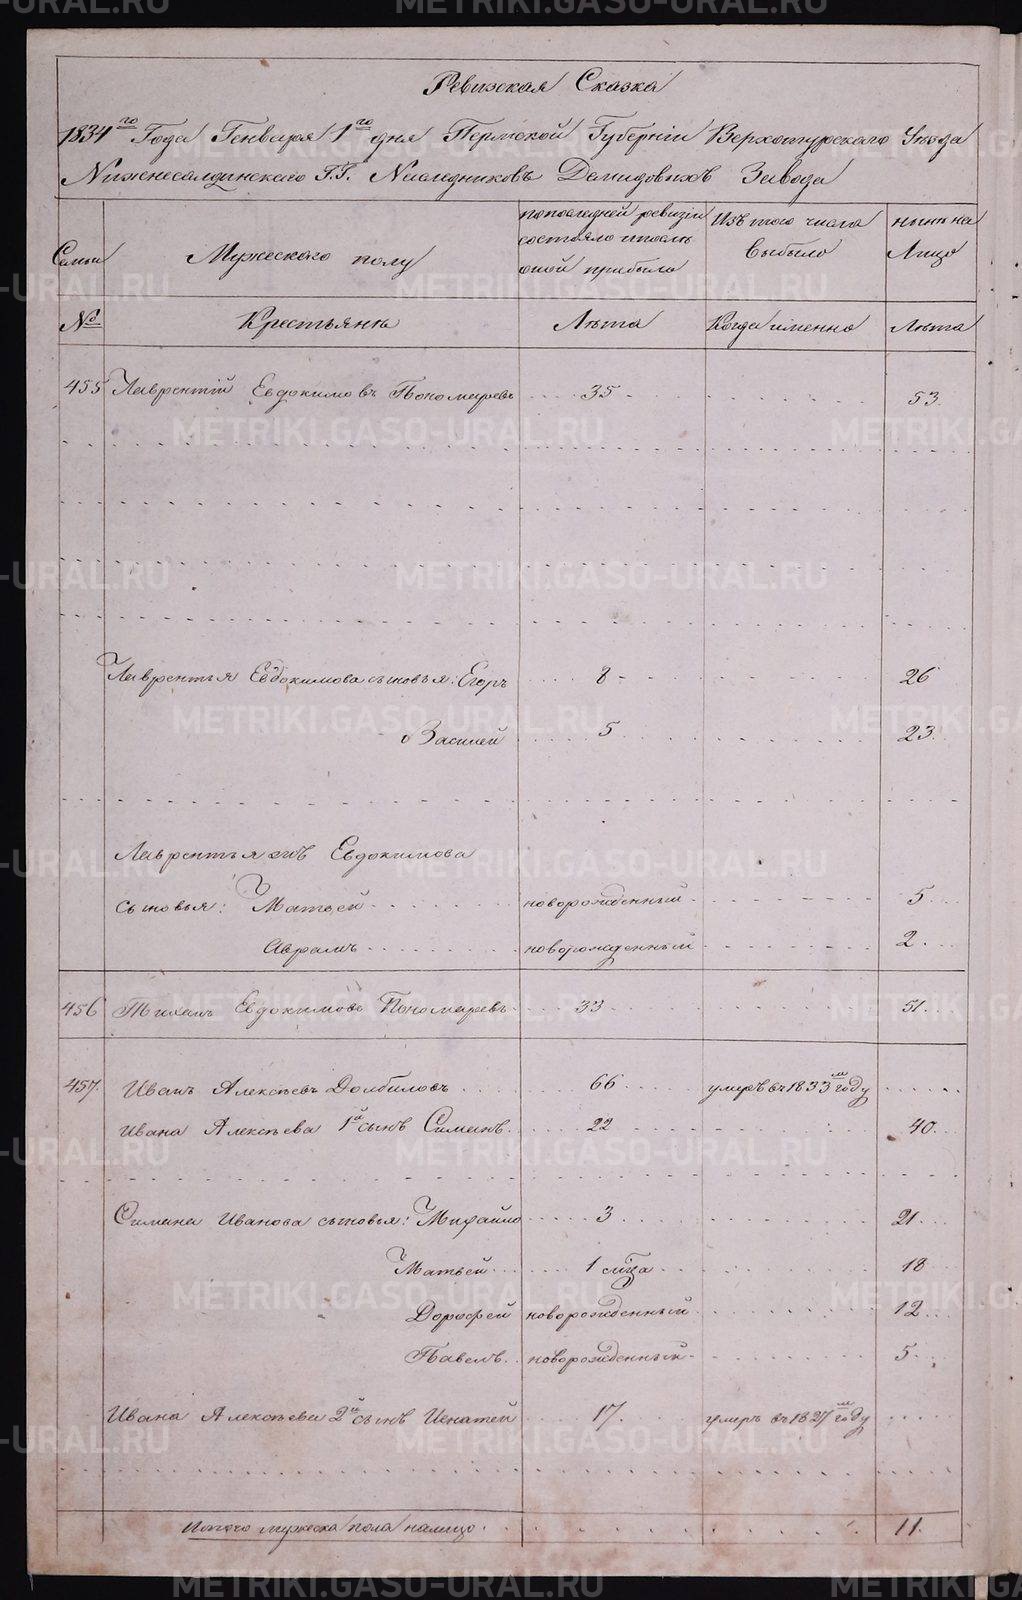 Ревизская Сказка
1834го Года Генваря 1го дня Пермской Губернiи Верхотурского Уезда
Нижнесалдинскаго Г.Г. Наследниковъ Демидовыхъ Завода
Семьи
Мужескаго полу
попоследней ревизiи состояло ипосль оной прибыло
Изъ того числа выбыло
нынь на Лицо
№
Крестьянь
Льта
Когда именно
Льта
455 Лаврентiй Евдокимовъ Пономаревъ 35 53
Лаврентья Евдокимова сыновья: Егоръ 8 26
Василей 5 23
Лаврентья Евдокимова
сыновья: Матвей новорожденный 5
Аврамъ новорожденный 2
456 Евдокимовъ Пономаревъ 33 51
457 Иванъ Алексеевъ Долбиловъ 66 умеръ въ 1833м году
Ивана Алексеева 1й сынъ Симанъ 22 40
Симана Иванова сыновья: Михайло 3 21
Матвей 1 мца 18
Дорофей новорожденный 12
Павелъ новорожденный 5
Ивана Алексеева 2й сынъ Игнатей 17 умеръ въ 1827м году
Итого мужеска пола налицо 11
METRIKI.GASO-URAL.RU